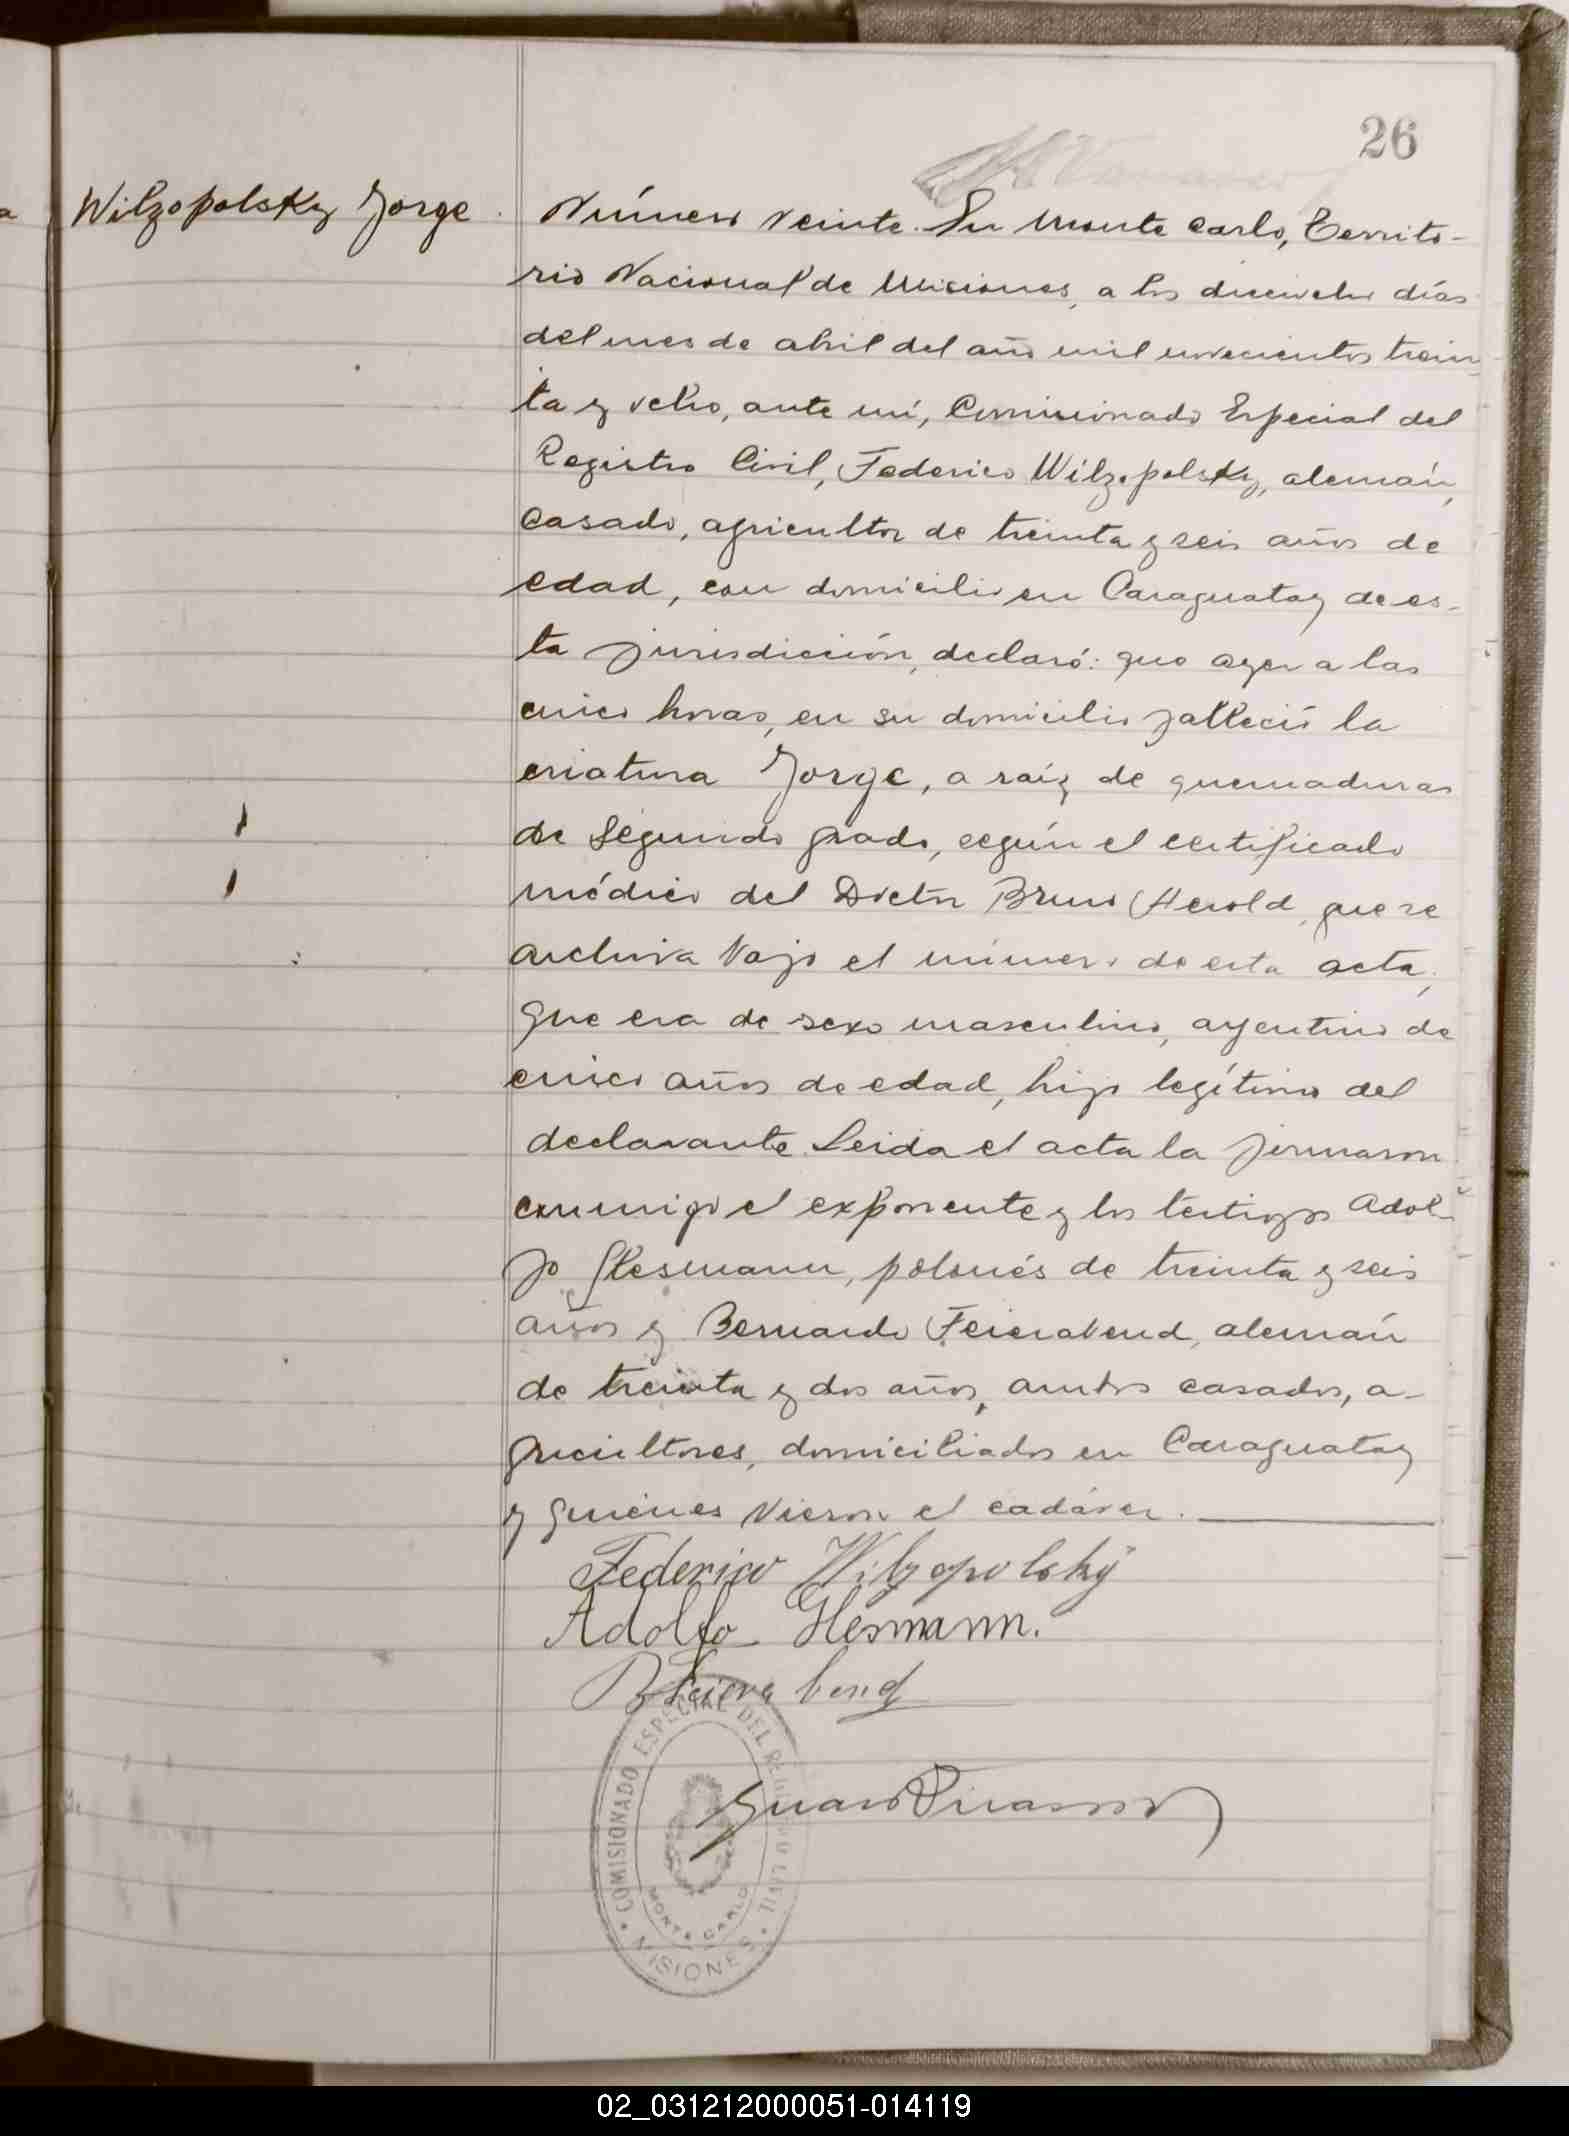 26
Wilzopolsky Jorge
Número veinte. En Monte Carlo, Territo-
rio Nacional de Misiones, a los dieciocho días
del mes de abril del año mil novecientos trein
ta y ocho, ante mí, Comisionado Especial del
Registro Civil, Federico Wilzopolsky, alemán,
casado, agricultor de treinta y seis años de
edad, con domicilio en Caraguatay de es-
ta jurisdicción, declaró: que ayer a las
cinco horas, en su domicilio falleció la
criatura Jorge, a raíz de quemaduras
de segundo grado, según el certificado
médico del Doctor Bruno Herold, que se
archiva bajo el número de esta acta;
que era de sexo masculino, argentino de
cinco años de edad, hijo legítimo del
declarante. Leida el acta la firmaron
conmigo el exponente y los testigos Adol-
fo Glesmann, polonés de treinta y seis
años y Bernardo Feierabend, alemán
de treinta y dos años, ambos casados, a-
gricultores, domiciliados en Caraguatay
y quiénes vieron el cadáver.
Federico Wilzopolsky
Adolfo Glesmann.
B Feierabend
COMISIONADO ESPECIAL DEL REGISTRO CIVIL
MONTE CARLO
MISIONES
02_031212000051-014119